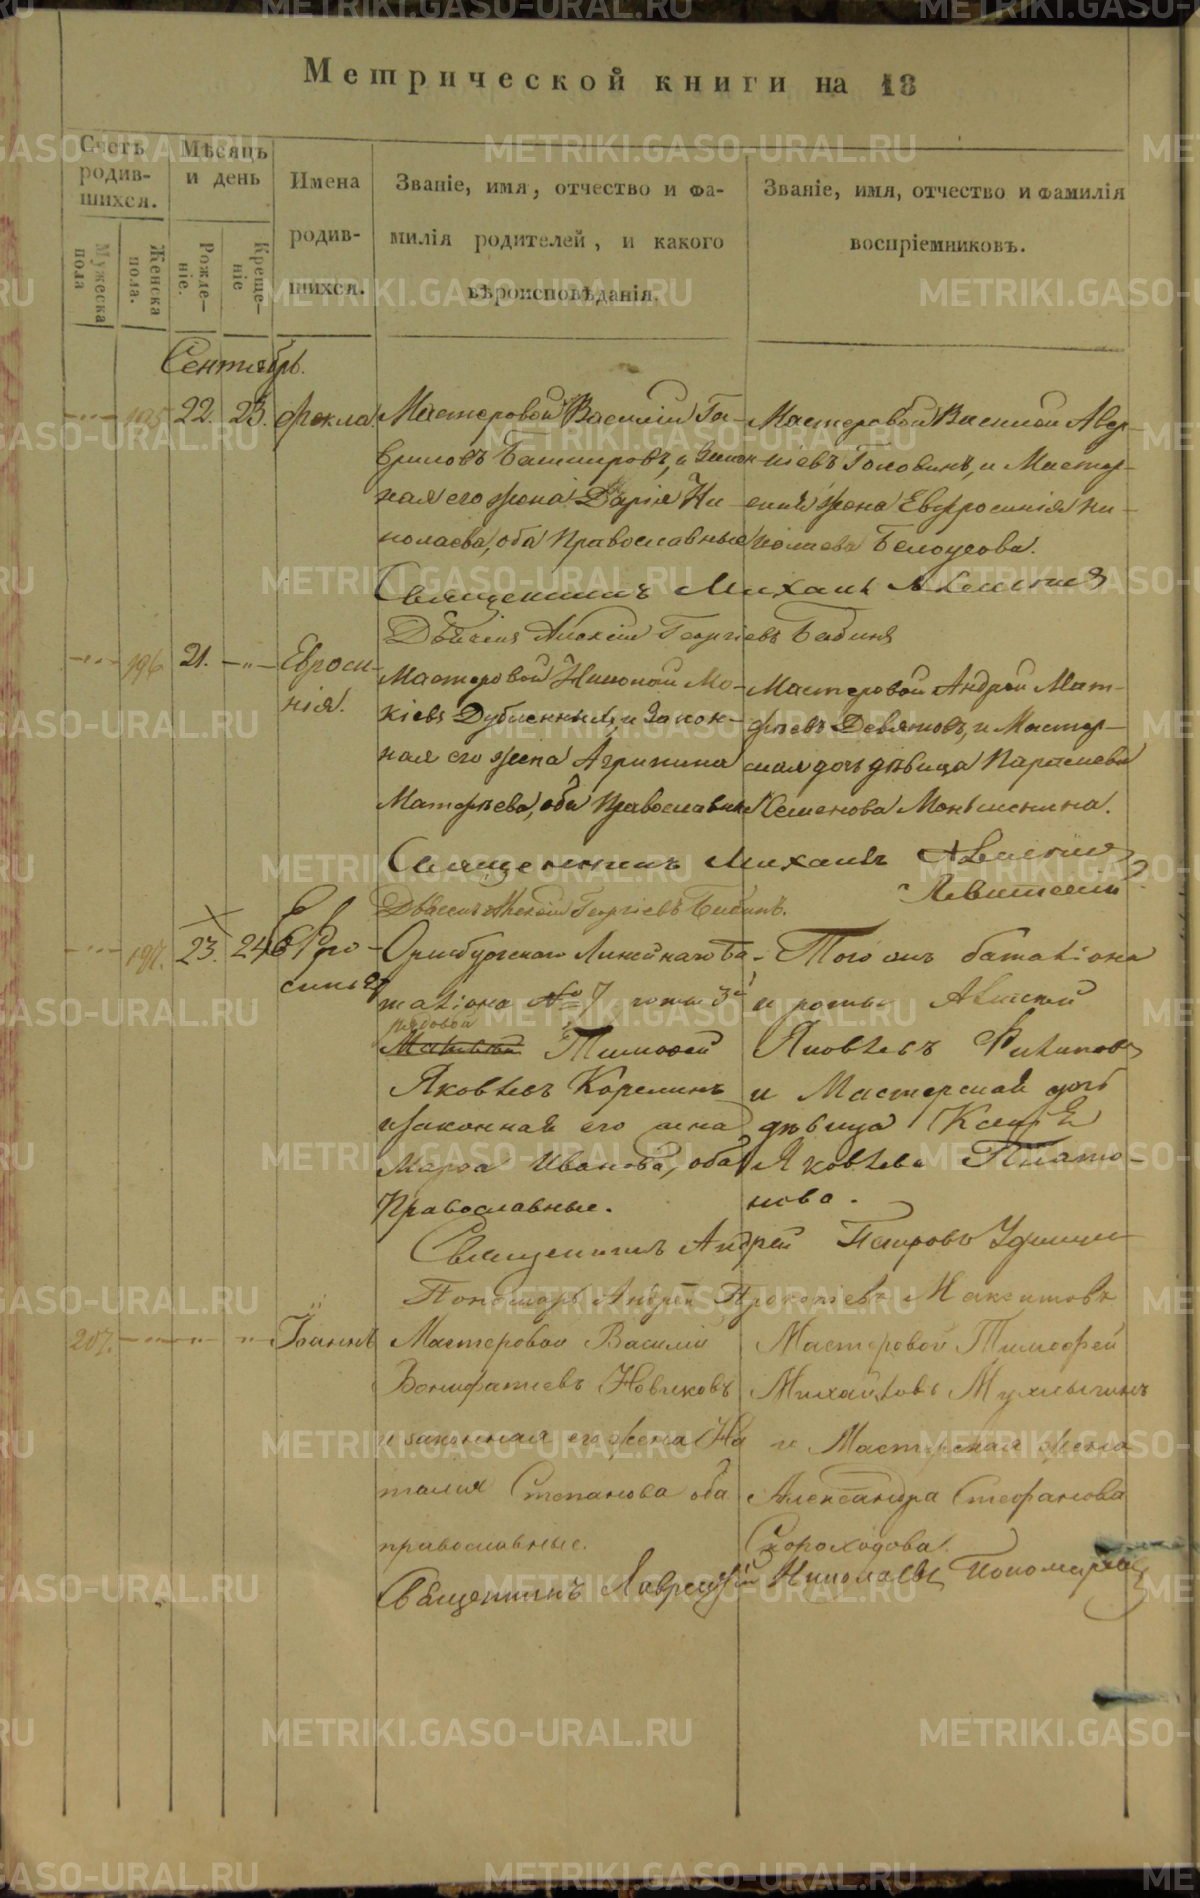 Метрической книги на 18
Счетъ родившихся.
Мѣсяцъ и день
Имена родившихся.
Званіе, имя, отчество и фамилія родителей, и какого вѣроисповѣданія.
Званіе, имя, отчество и фамилія воспріемниковъ.
Мужеска пола
Женска пола.
Рожденіе.
Крещеніе
Сентябрь.
195 22. 23. Фекла
Мастеровой Василій Га-
вриловъ Башкировъ, и закон-
ная его жена Дарія Ни-
колаева, оба Православные
Мастеровой Василій Авер-
кіевъ Головинъ, и Мастер-
ская жена Евфросинія Ни-
колаева Белоусова.
Священникъ Михаилъ
Алексій Георгіевъ Бабинъ
196 21. —"— Евроси-
нія.
Мастеровой Никонъ Мо-
кіевъ Дубленныхъ, и закон-
ная его жена Агрипина
Матфѣева, оба Православные
Мастеровой Андрей Мат-
фѣевъ Девятовъ, и Мастер-
ская дочь дѣвица Параскева
Семенова Меньшенина.
Священникъ Михаилъ
Левитскій
Алексій Георгіевъ Бабинъ.
197. 23. 24 Ефро-
синья
Оринбургскаго Линейнаго ба-
таліона № 7 роты 3й
рядовой
Тимофей
Яковлевъ Корелинъ
и законная его жена
Марфа Иванова, оба
Православные.
Того жъ баталіона
и роты Алексей
Яковлевъ Филиповъ
и Мастерская дочь
дѣвица
Яковлева Плато-
нова.
Священникъ Андрей Петровъ Удинцевъ
Пономарь Андрей Прокопіевъ Максимовъ
207. —"— —"— Іоаннъ
Мастеровой Василій
Вонифатіевъ Новиковъ
и законная его жена На
талия Степанова оба
православные.
Мастеровой Тимофей
Михайловъ Мухлынинъ
и Мастерская жена
Александра Стефанова
Скороходова.
Священникъ Лаврентій Николаевъ Пономаревъ
METRIKI.GASO-URAL.RU